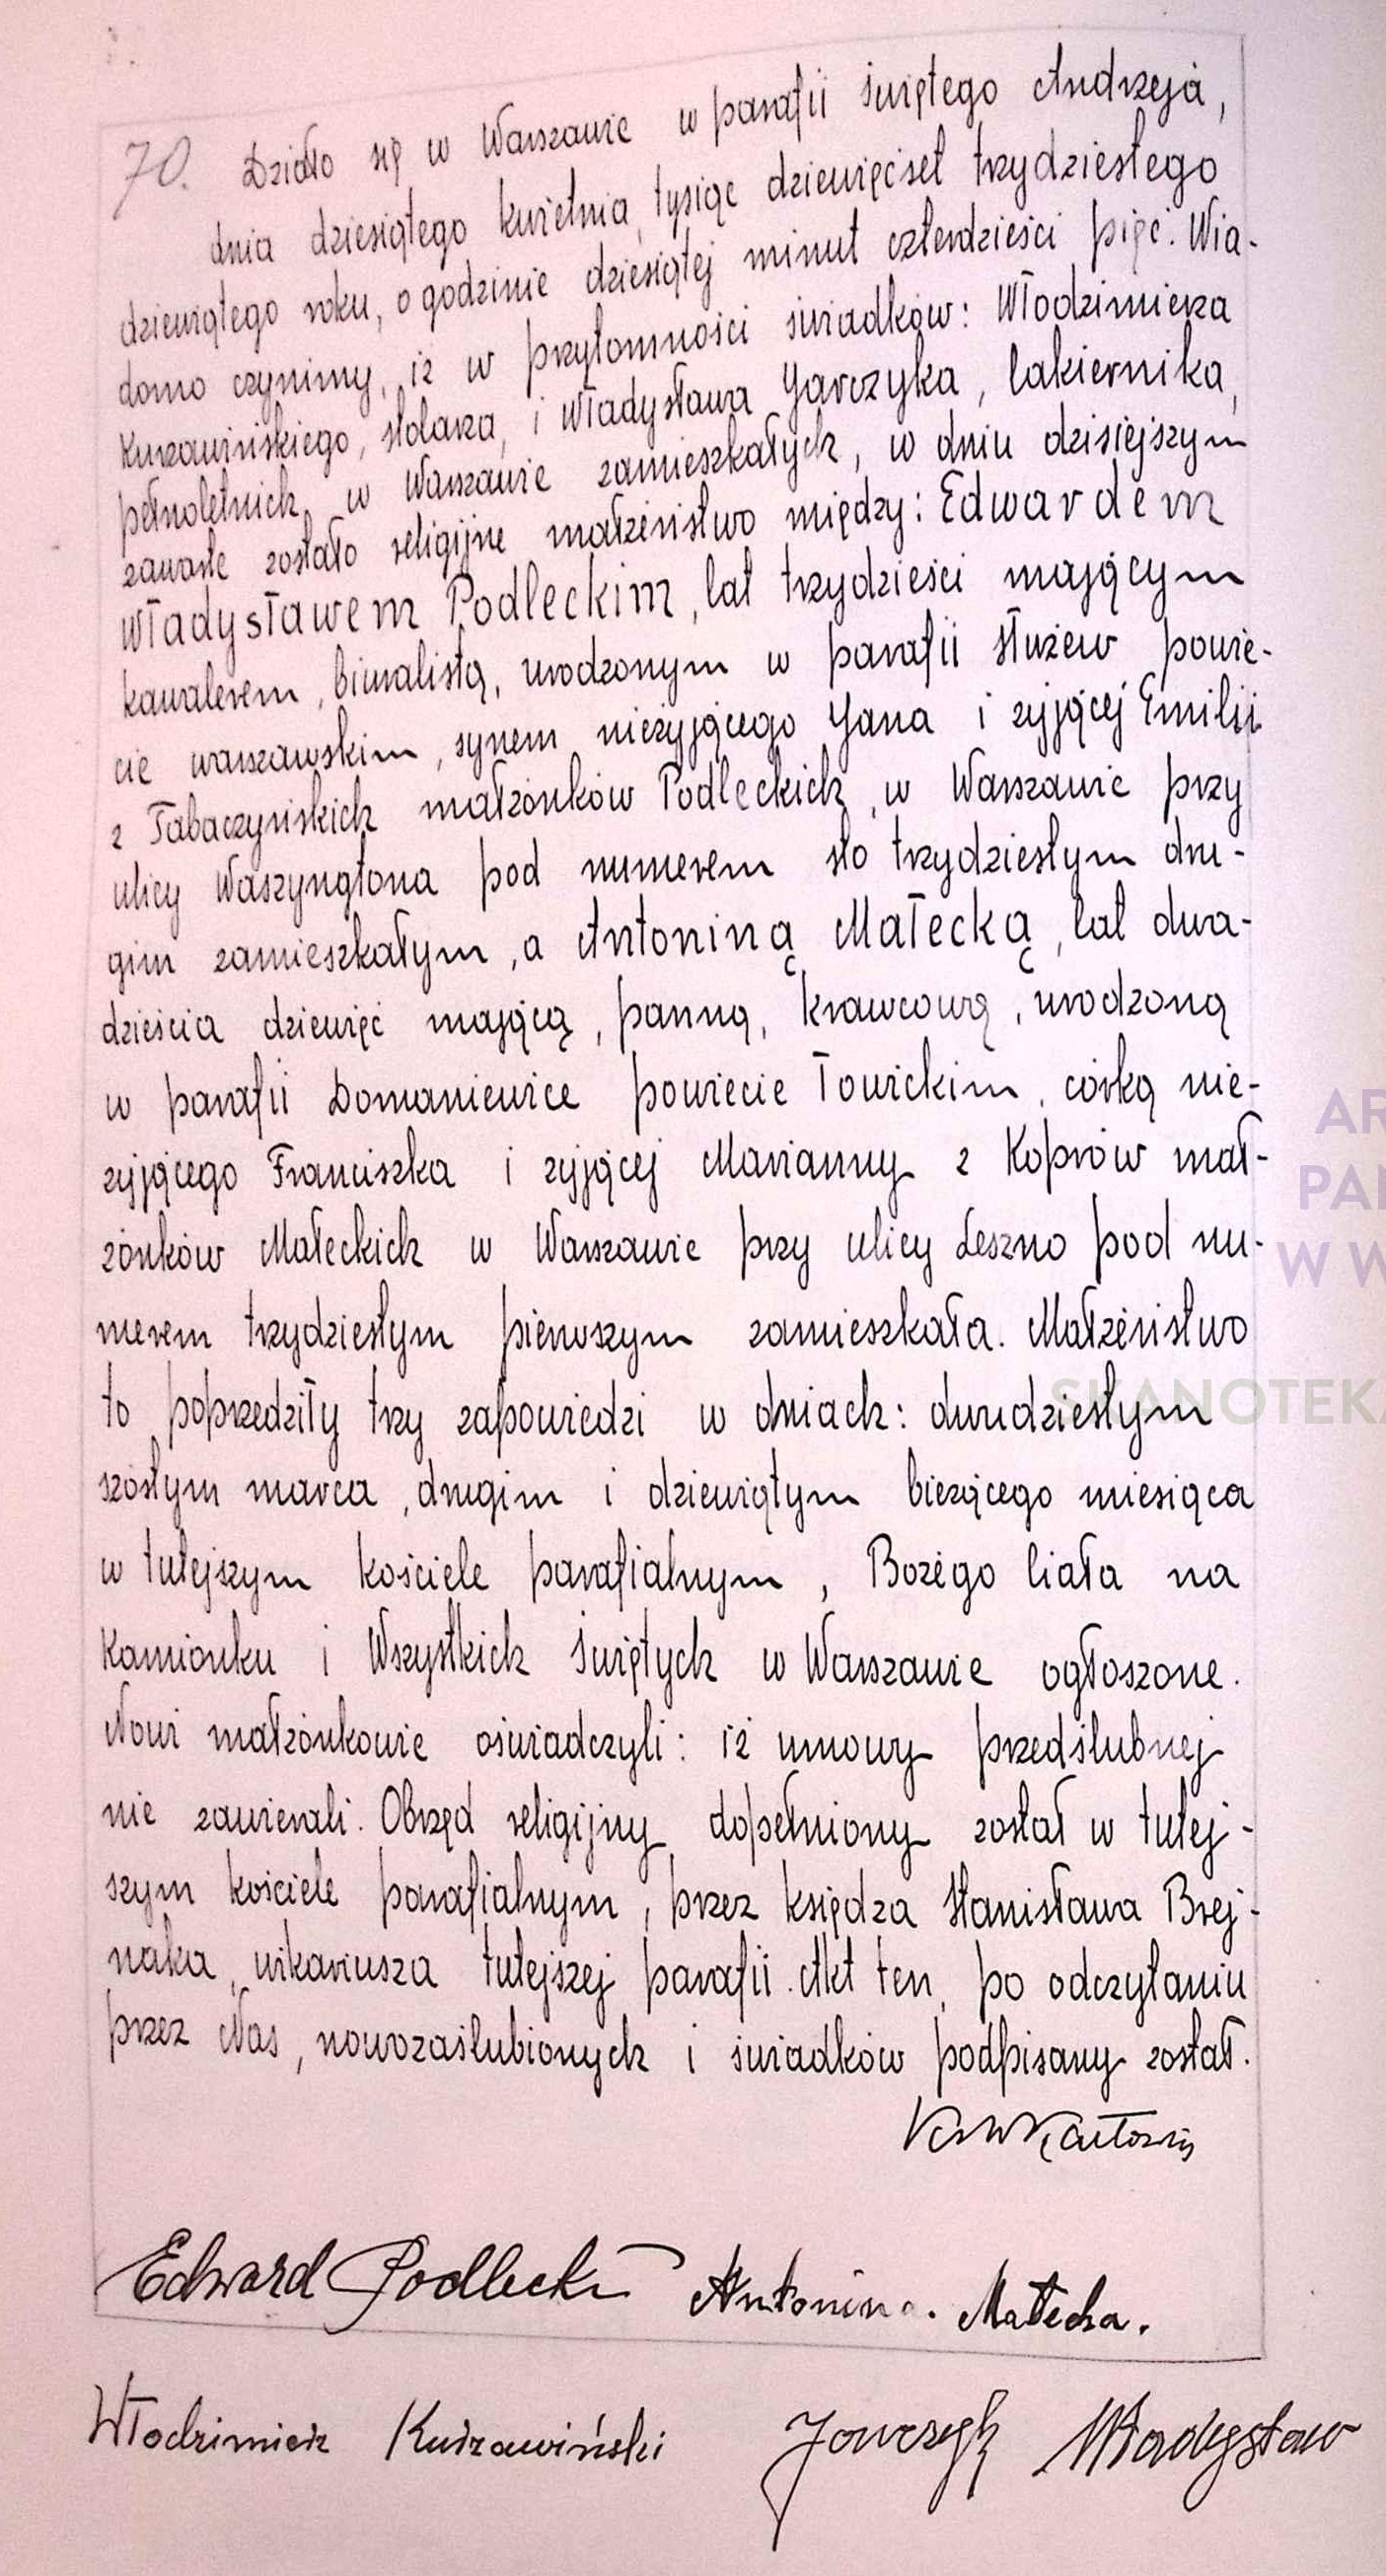 70. Działo się w Warszawie w parafii świętego Andrzeja,
dnia dziesiątego kwietnia, tysiąc dziewięćset trzydziestego
dziewiątego roku, o godzinie dziesiątej minut czterdzieści pięć. Wia-
domo czynimy, iż w przytomności świadków: Włodzimierza
Kurzawińskiego, stolarza, i Władysława Jarczyka, lakiernika,
pełnoletnich, w Warszawie zamieszkałych, w dniu dzisiejszym
zawarte zostało religijne małżeństwo między: Edwardem
Władysławem Podleckim, lat trzydzieści mającym
kawalerem, biuralistą, urodzonym w parafii Służew powie-
cie warszawskim, synem nieżyjącego Jana i żyjącej Emilji
z Tabaczyńskich małżonków Podleckich, w Warszawie przy
ulicy Waszyngtona pod numerem sto trzydziestym dru-
gim zamieszkałym, a Antoniną Małecką, lat dwa-
dzieścia dziewięć mającą, panną, krawcową, urodzoną
w parafii Domaniewice powiecie Łowickim, córką nie-
żyjącego Franciszka i żyjącej Marianny z Koprów mał-
żonków Małeckich w Warszawie przy ulicy Leszno pod nu-
merem trzydziestym pierwszym zamieszkała. Małżeństwo
to poprzedziły trzy zapowiedzi w dniach: dwudziestym
szóstym marca, drugim i dziewiątym bieżącego miesiąca
w tutejszym kościele parafialnym, Bożego Ciała na
Kamionku i Wszystkich Świętych w Warszawie ogłoszone.
Nowi małżonkowie oświadczyli: iż umowy przedślubnej
nie zawierali. Obrzęd religijny dopełniony został w tutej-
szym kościele parafialnym, przez księdza Stanisława Brej-
naka, wikariusza tutejszej parafii. Akt ten, po odczytaniu
przez Nas, nowozaślubionych i świadków podpisany został.
Edward Podlecki Antonina. Małecka.
Włodzimierz Kurzawiński Jarczyk Władysław
SKANOTEKA